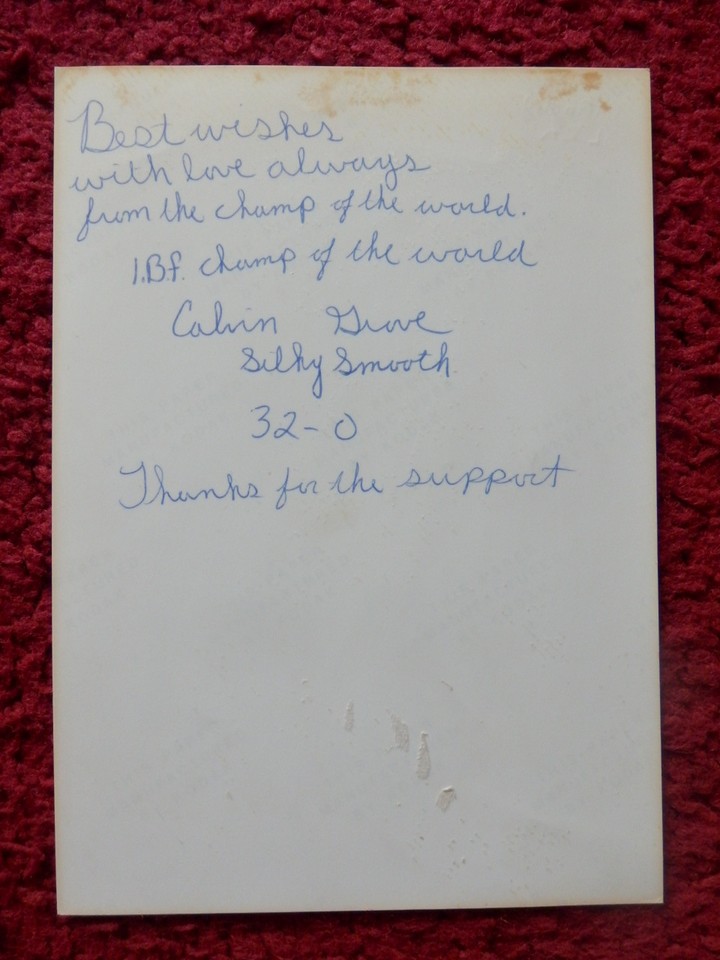 Best wishes
with love always
from the champ of the world.
I.B.f. champ of the world
Calvin Grove
Silky Smooth
32-0
Thanks for the support